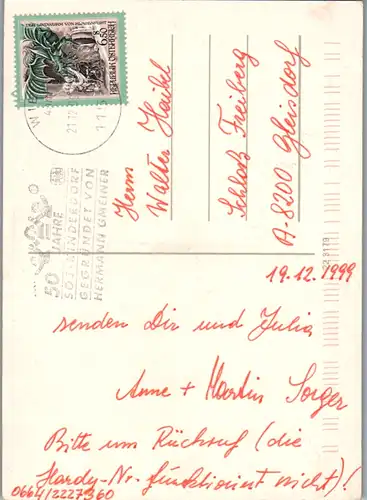 6.50
REPUBLIK ÖSTERREICH
WIE
21.12
111
50 JAHRE
SOS-KINDERDORF
GEGRÜNDET VON
HERMANN GMEINER
Herrn
Walter Haibel
Schloß Freiberg
A-8200 Gleisdorf
19.12.1999
senden Dir und Julia
Anne + Martin Sorger
Bitte um Rückruf (die
Handy-Nr. funktioniert nicht)!
0664/2227360